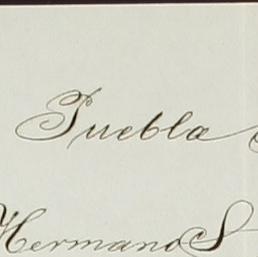 Puebla
Hermano S